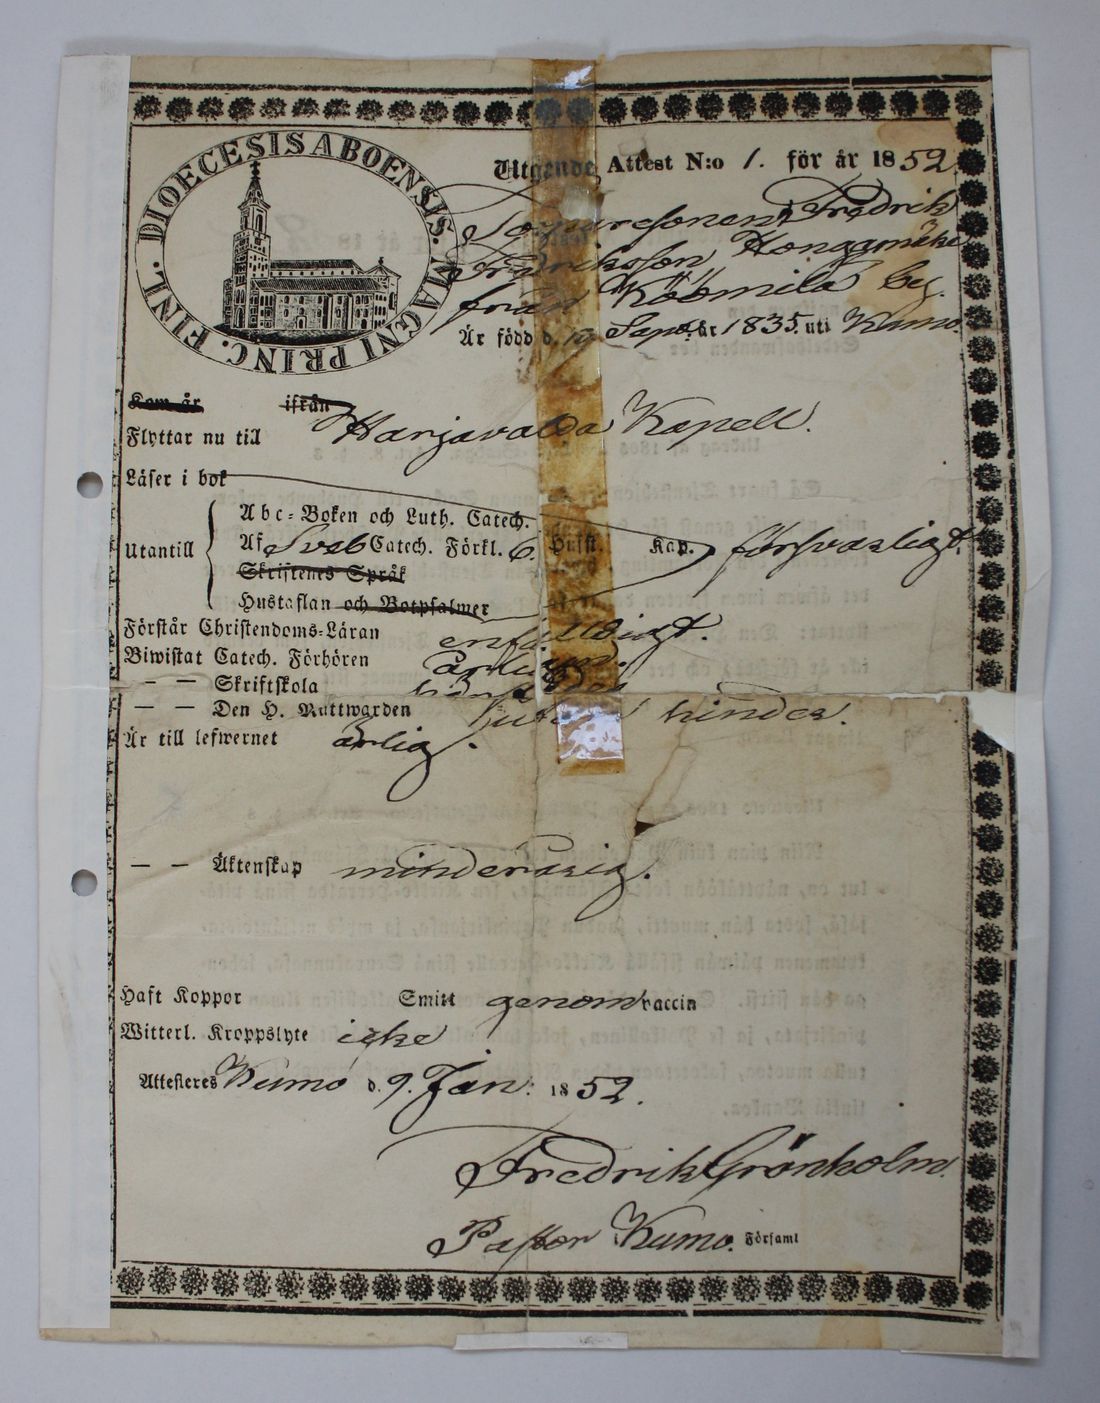 DIOECESIS ABOENSIS. MAGNI PRINC. FINL.
Utgående Attest N:o 1. för år 1852
Fredrik
Fredriksson
från Köömilä by.
Är född d. Sept. år 1835. uti Kumo.
Kom år ifrån
Flyttar nu till Harjavalda Kapell.
Läser i bok
Utantill
Abc-Boken och Luth. Catech.
Af Sveb Catech. Förkl. 6. Hufst. Kap. försvarligt.
Skriftenes Språk
Hustaflan och Botpsalmer
Förstår Christendoms-Läran enfaldigt.
Biwistat Catech. Förhören årligen.
— — Skriftskola
— — Den H. Nattwarden utan hinder.
Är till lefwernet ärlig.
— — Äktenskap minderårig.
Haft Koppor Smitt genom vaccin
Witterl. Kroppslyte icke
Attesteres Kumo d. 9. Jan: 1852.
Fredrik Grönholm.
Pastor Kumo. Församl